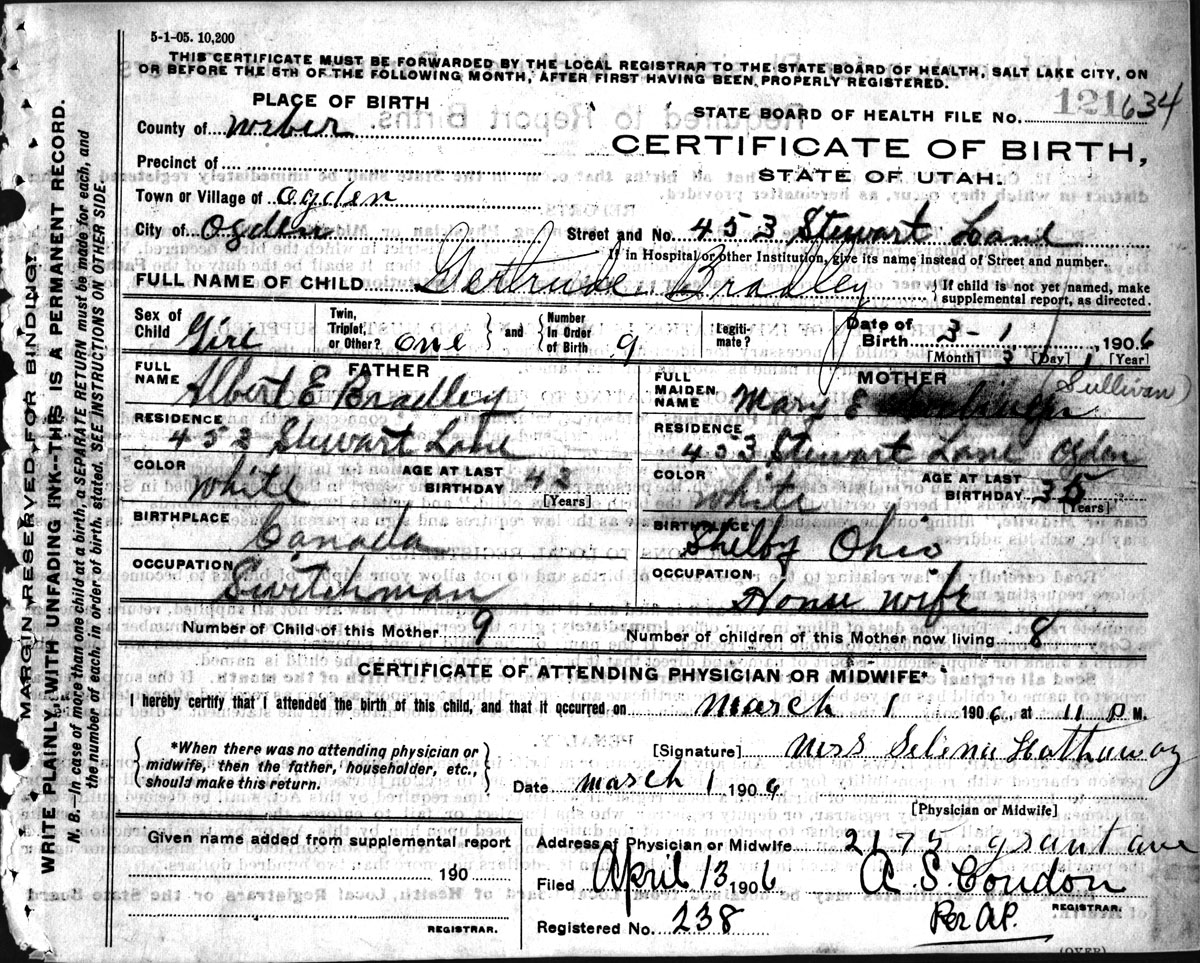 5-1-05. 10,200
THIS CERTIFICATE MUST BE FORWARDED BY THE LOCAL REGISTRAR TO THE STATE BOARD OF HEALTH, SALT LAKE CITY, ON
OR BEFORE THE 5TH OF THE FOLLOWING MONTH, AFTER FIRST HAVING BEEN PROPERLY REGISTERED.
MARGIN RESERVED FOR BINDING!
WRITE PLAINLY, WITH UNFADING INK--THIS IS A PERMANENT RECORD.
N. B.--In case of more than one child at a birth, a SEPARATE RETURN must be made for each, and
the number of each, in order of birth, stated. SEE INSTRUCTIONS ON OTHER SIDE.
PLACE OF BIRTH
STATE BOARD OF HEALTH FILE No. 121634
County of Weber
CERTIFICATE OF BIRTH,
Precinct of
STATE OF UTAH.
Town or Village of Ogden
City of Ogden Street and No. 453 Stewart Lane
If in Hospital or other Institution, give its name instead of Street and number.
FULL NAME OF CHILD Gertrude Bradley { If child is not yet named, make
supplemental report, as directed.
Sex of Child Girl Twin, Triplet, or Other? one } and { Number In Order of Birth 9 Legiti-mate? Date of Birth 3 - 1, 1906
[Month] 3 [Day] 1 [Year]
FATHER MOTHER
FULL NAME Albert E Bradley FULL MAIDEN NAME Mary E (Sullivan)
RESIDENCE 453 Stewart Lane RESIDENCE 453 Stewart Lane Ogden
COLOR White AGE AT LAST BIRTHDAY 43 [Years] COLOR White AGE AT LAST BIRTHDAY 35 [Years]
BIRTHPLACE Canada BIRTHPLACE Shelby Ohio
OCCUPATION Switchman OCCUPATION House wife
Number of Child of this Mother 9 Number of children of this Mother now living 8
CERTIFICATE OF ATTENDING PHYSICIAN OR MIDWIFE*
I hereby certify that I attended the birth of this child, and that it occurred on March 1 1906, at 11 P M.
*When there was no attending physician or
midwife, then the father, householder, etc.,
should make this return.
[Signature] Mrs Selena Hathaway
Date March 1 1906
[Physician or Midwife]
Given name added from supplemental report
190
REGISTRAR.
Address of Physician or Midwife 2175 grant ave
Filed April 13 1906 A. S. Condon
REGISTRAR.
Registered No. 238 Per A.P.
(OVER)